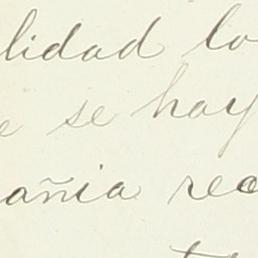 lidad lo
e se hay
añia rec